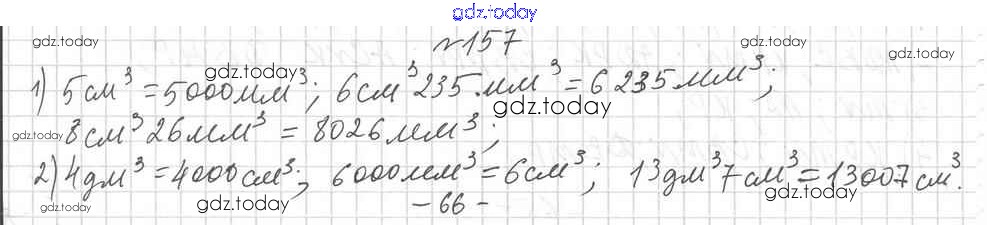 gdz.today
№157
gdz.today gdz.today gdz.today
1) 5см³ = 5000мм³; 6см³ 235мм³ = 6235мм³;
gdz.today gdz.today
8см³ 26мм³ = 8026мм³;
gdz.today gdz.today gdz.today
2) 4дм³ = 4000см³; 6000мм³ = 6см³; 13дм³ 7см³ = 13007см³.
gdz.today gdz.today gdz.today
- 66 -